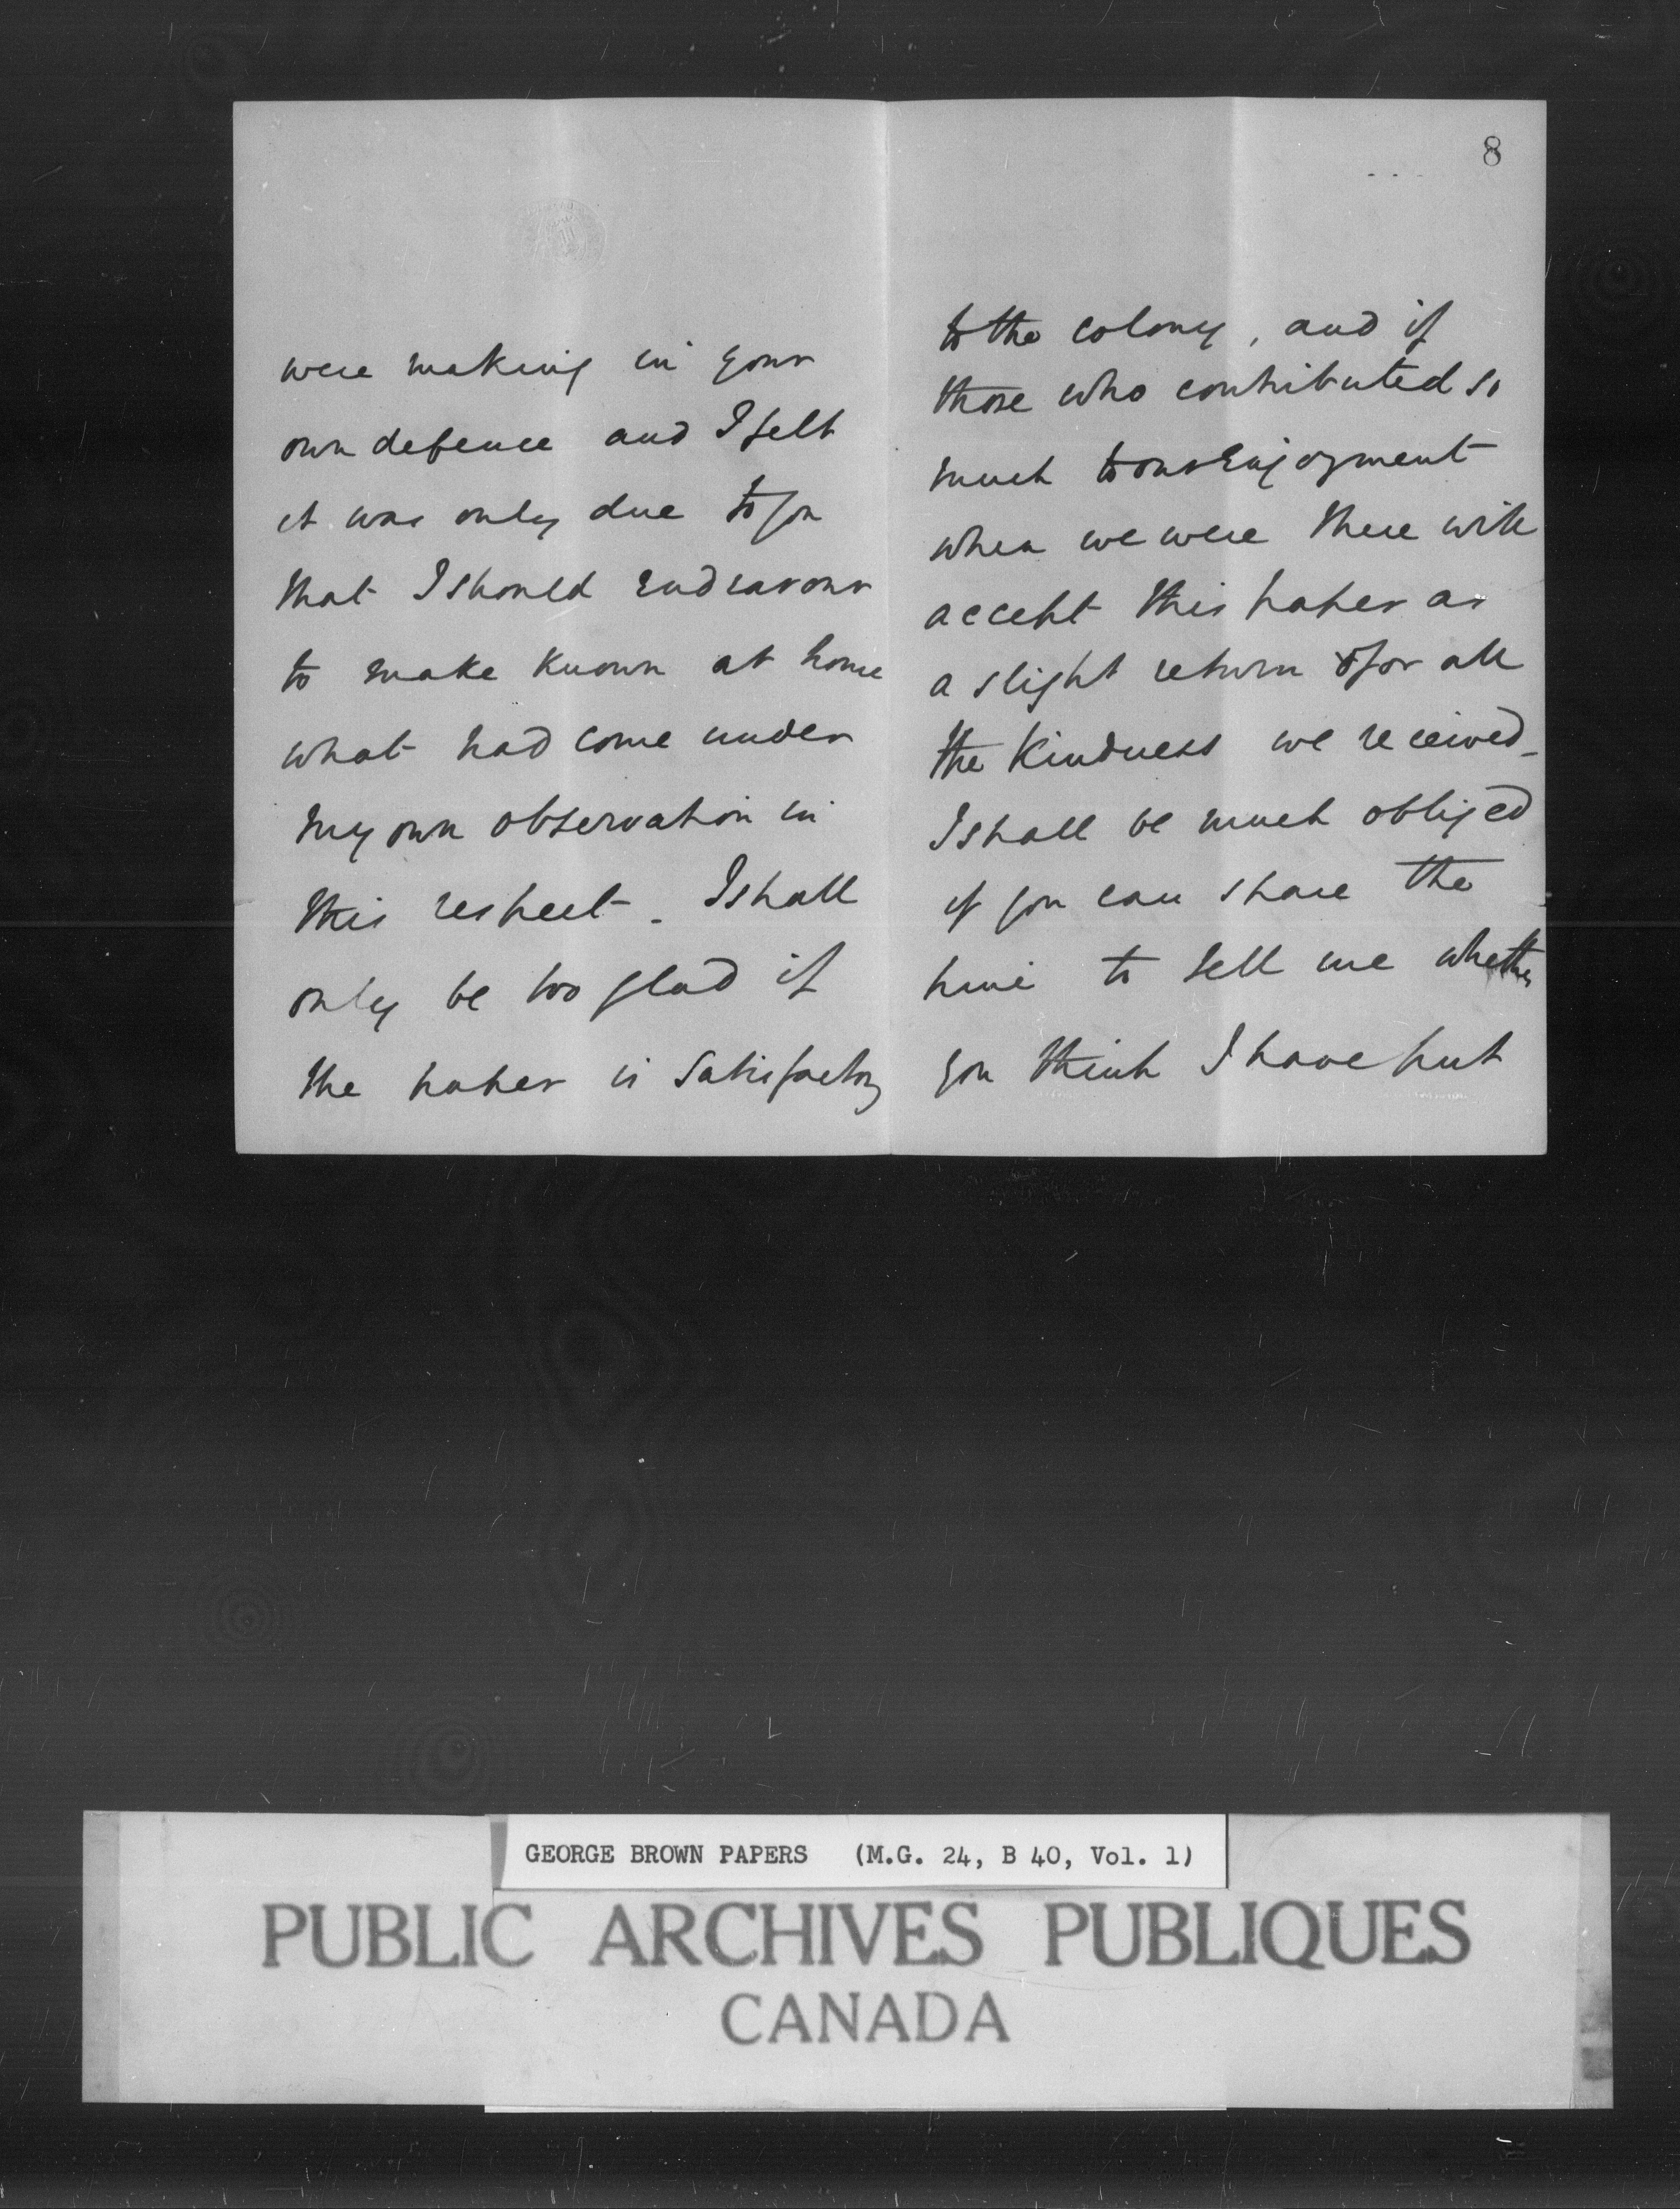 were making in your
own defence and I felt
it was only due to you
that I should endeavour
to make known at home
what had come under
my own observation in
this respect _ I shall
only be too glad if
the paper is satisfactory
8
to the colony, and if
those who contributed so
much to our enjoyment
when we were there will
accept this paper as
a slight return for all
the kindness we received _
I shall be much obliged
if you can spare the
time to tell me whether
you think I have put
GEORGE BROWN PAPERS (M.G. 24, B 40, Vol. 1)
PUBLIC ARCHIVES PUBLIQUES
CANADA